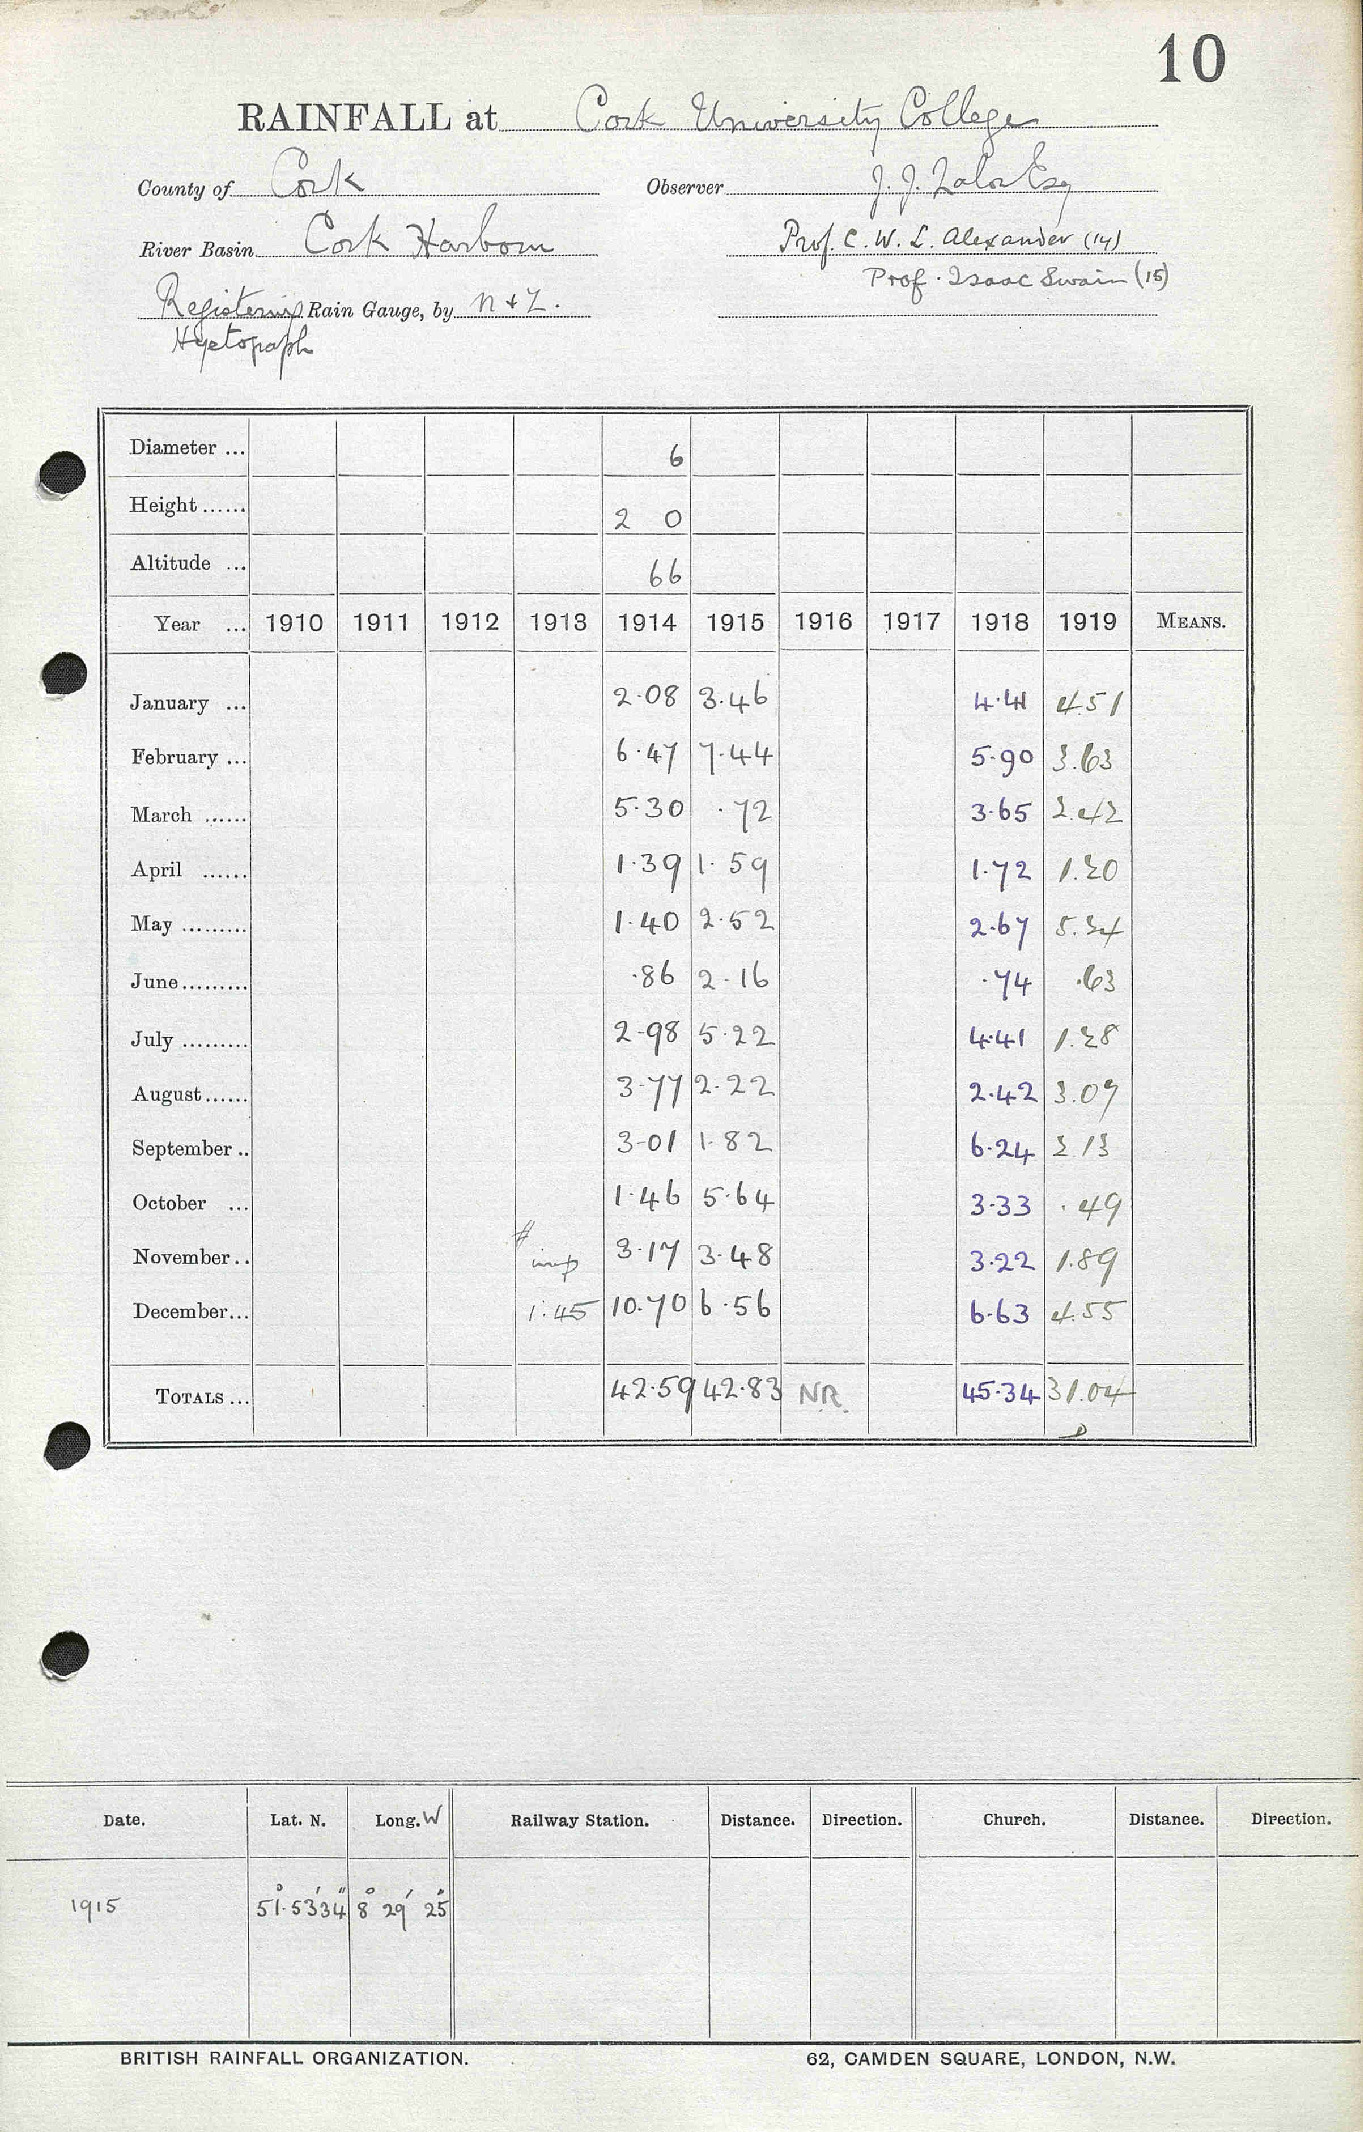 10
RAINFALL at Cork University College
County of Cork Observer J. J. Lalor Esq
River Basin Cork Harbour Prof. C. W. L. Alexander (14)
Prof. Isaac Swain (15)
Registering Rain Gauge, by N & Z.
Hyetograph
Diameter ... 6
Height ...... 2 0
Altitude ... 66
Year ... 1910 1911 1912 1913 1914 1915 1916 1917 1918 1919 MEANS.
January ... 2.08 3.46 4.41 4.51
February ... 6.47 7.44 5.90 3.63
March ...... 5.30 .72 3.65 2.42
April ...... 1.39 1.59 1.72 1.20
May ......... 1.40 2.52 2.67 5.24
June ......... .86 2.16 .74 .63
July ......... 2.98 5.22 4.41 1.28
August ...... 3.77 2.22 2.42 3.07
September .. 3.01 1.82 6.24 2.13
October ... 1.46 5.64 3.33 .49
November .. imp 3.17 3.48 3.22 1.89
December ... 1.45 10.70 6.56 6.63 4.55
TOTALS ... 42.59 42.83 NR. 45.34 31.04
Date. Lat. N. Long. W Railway Station. Distance. Direction. Church. Distance. Direction.
1915 51° 53' 34" 8° 29' 25"
BRITISH RAINFALL ORGANIZATION. 62, CAMDEN SQUARE, LONDON, N.W.